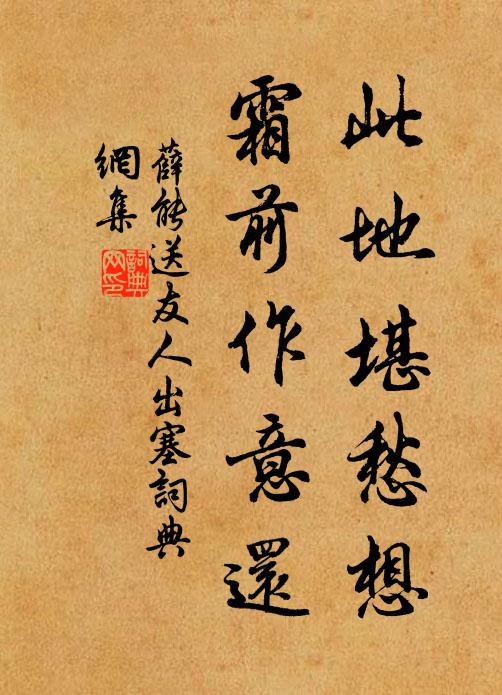 此地堪愁想
霜前作意還
薛能送友人出塞詞典
網集
詞典
网印